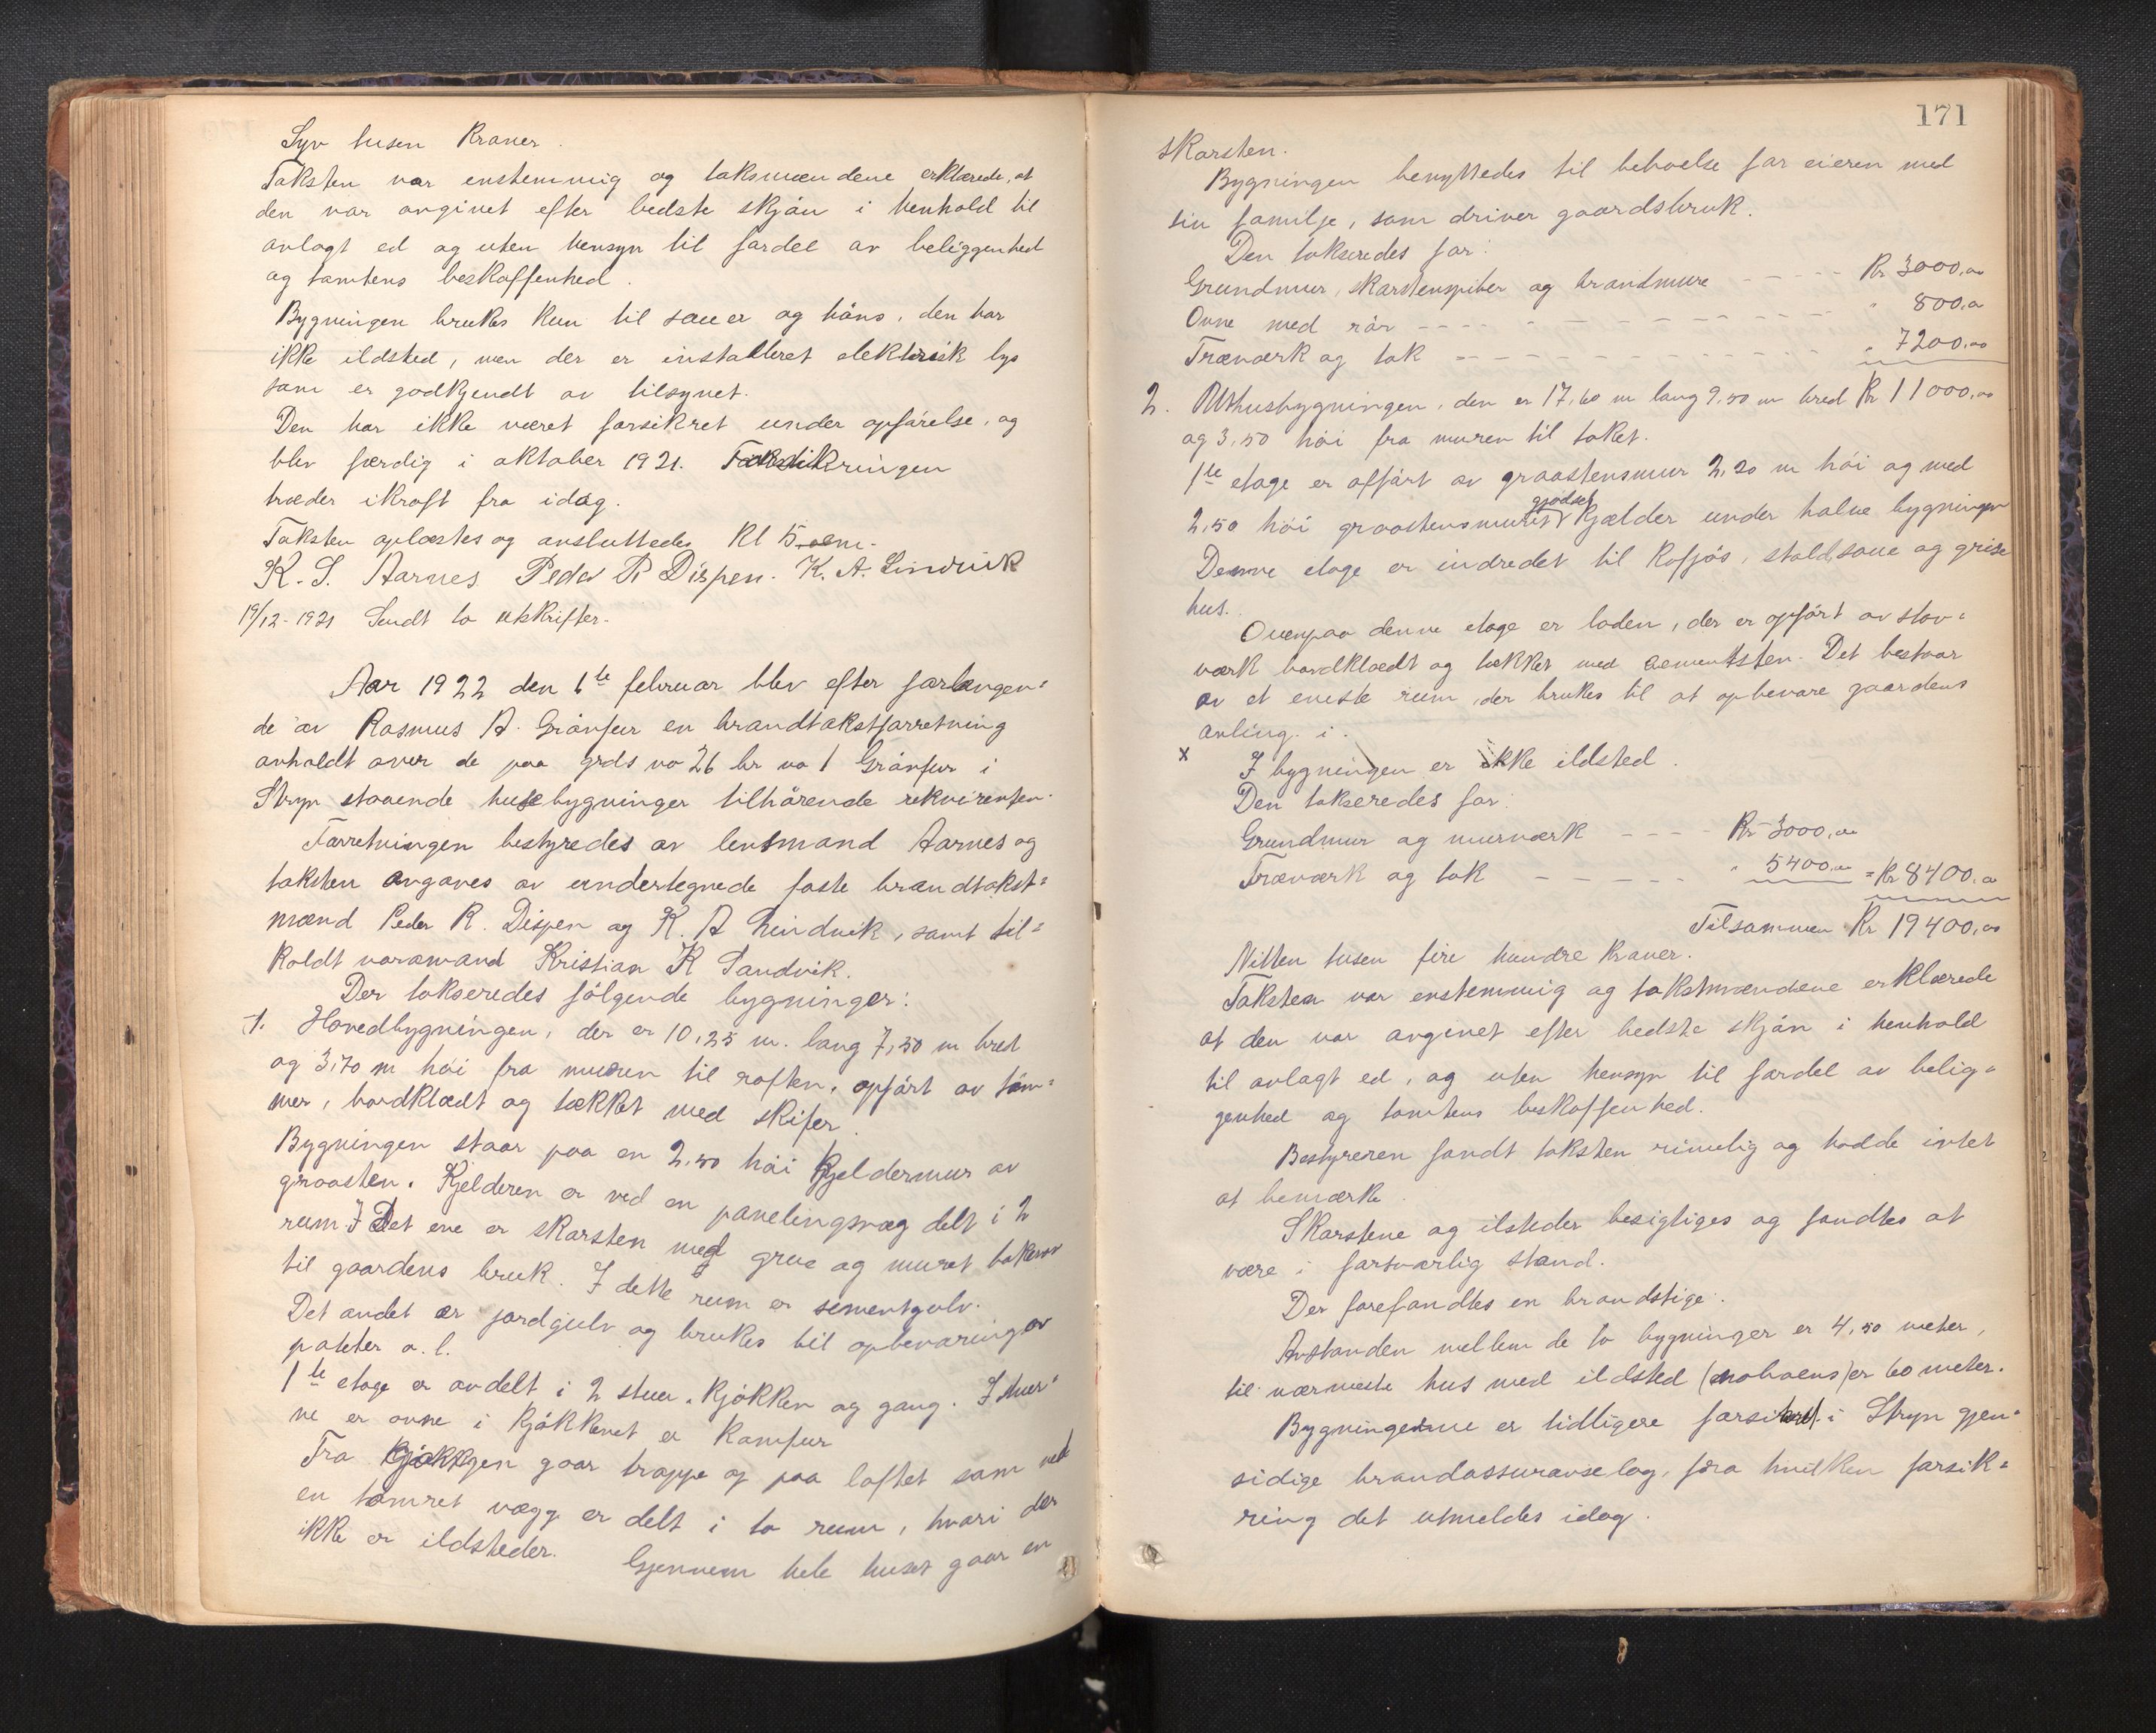 Syv tusen kroner.
Taksten var enstemmig og taksmændene erklærede, at
den var avgivet efter bedste skjøn i henhold til
avlagt ed og uten hensyn til fordel av beliggenhed
og tomtens beskaffenhed.
Bygningen brukes kun til sauer og høns, den har
ikke ildsted, men der er installeret elektrisk lys
som er godkjendt av tilsynet.
Den har ikke været forsikret under opførelse, og
blev færdig i oktober 1921. Forsikringen
træder ikraft fra idag.
Taksten oplæstes og avsluttedes kl 5 em.
K. S. Aarnes. Peder R Dispen. K. A. Lindvik
19/12-1921 Sendt to utskrifter.
Aar 1922 den 6te februar blev efter forlangen=
de av Rasmus A. Grånfur en brandtakstforretning
avholdt over de paa grds no 26 br no 1 Grånfur i
Stryn staaende husebygninger tilhørende rekvirenten.
Forretningen bestyredes av lensmand Aarnes og
taksten avgaves av undertegnede faste brandtakst=
mænd Peder R. Dispen og K. A Lindvik, samt til=
kaldt varamand Kristian K Sandvik.
Der takseredes følgende bygninger:
1. Hovedbygningen, der er 10,25 m. lang 7,50 m bred
og 3,70 m høi fra muren til raften, opført av tøm=
mer, bordklædt og tækket med skifer.
Bygningen staar paa en 2,50 høi kjeldermur av
graasten. Kjelderen er ved en panelingsvæg delt i 2
rum. I Det ene er skorsten med grue og muret bakerov
til gaardens bruk. I dette rum er sementgulv.
Det andet er jordgulv og brukes til opbevaring av
poteter o.l.
1te etage er avdelt i 2 stuer, kjøkken og gang. I stuer=
ne er ovne i kjøkkenet er komfur
Fra kjøkkgen gaar trappe op paa loftet som ved
en tømret vægg er delt i to rum, hvori der
ikke er ildsteder. Gjennem hele huset gaar en
171
skorsten.
Bygningen benyttedes til beboelse for eieren med
sin familje, som driver gaardsbruk.
Den takseredes for:
Grundmur, skorstenspiber og brandmure - - - - - Kr 3000,00
Ovne med rør - - - - - - - - - - - " 800,00
Træværk og tak - - - - - - - - - - " 7200,00
2. Uthusbygningen, den er 17,60 m lang 9,50 m bred Kr 11000,00
og 3,50 høi fra muren til taket.
1te etage er opført av graastensmur 2,20 m høi og med
gjødsel
2,50 høi graastensmuret kjælder under halve bygningen
Denne etage er indredet til kofjøs, stald, saue og grise
hus.
Ovenpaa denne etage er laden, der er opført av stav=
værk bordklædt og tækket med cementsten. Det bestaar
av et eneste rum, der brukes til at opbevare gaardens
avling i.
x I bygningen er ikke ildsted.
Den takseredes for:
Grundmur og murværk - - - - Kr 3000,00
Træværk og tak - - - - - " 5400,00 = Kr 8400,00
Tilsammen Kr 19400,00
Nitten tusen fire hundre kroner.
Taksten var enstemmig og takstmændene erklærede
at den var avgivet efter bedste skjøn i henhold
til avlagt ed, og uten hensyn til fordel av belig=
genhed og tomtens beskaffenhed.
Bestyreren fandt taksten rimelig og hadde intet
at bemærke.
Skorstene og ilsteder besigtiges og fandtes at
være i forsvarlig stand.
Der forefandtes en brandstige.
Avstanden mellem de to bygninger er 4,50 meter,
til nærmeste hus med ildsted (naboens) er 60 meter.
Bygningerne er tidligere forsikret i Stryn gjen=
sidige brandassuranselag, fra hvilken forsik=
ring det utmeldes idag.